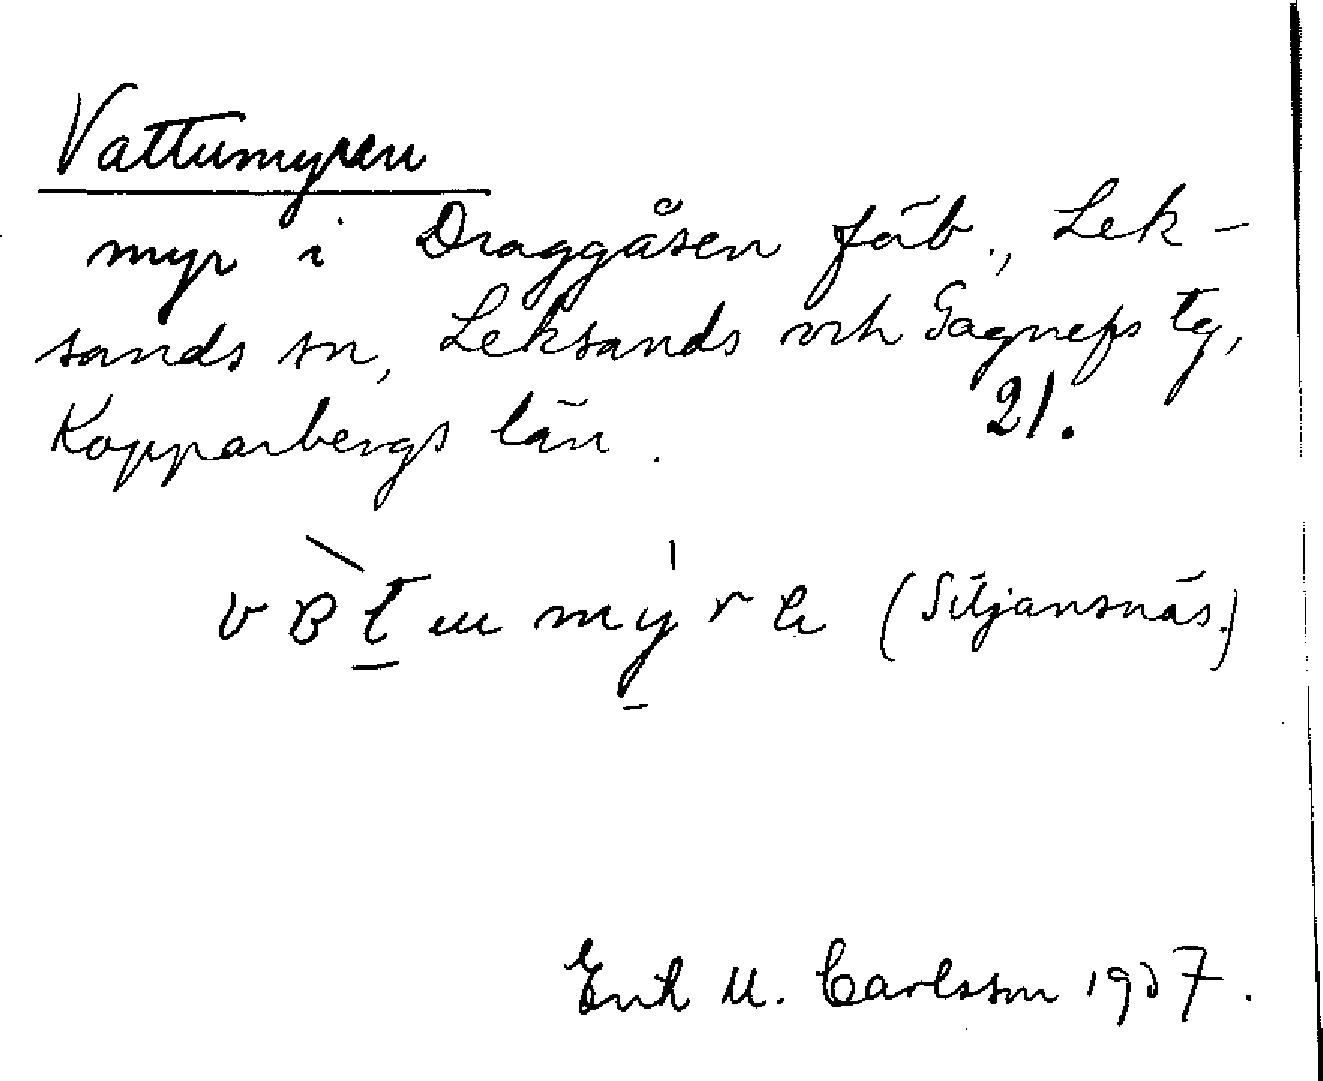 Vattumyren
myr i Draggåsen fäb., Lek-
sands sn, Leksands och Gagnefs tg,
Kopparbergs län. 21.
(Siljansnäs.)
Erik M. Carlsson 1937.